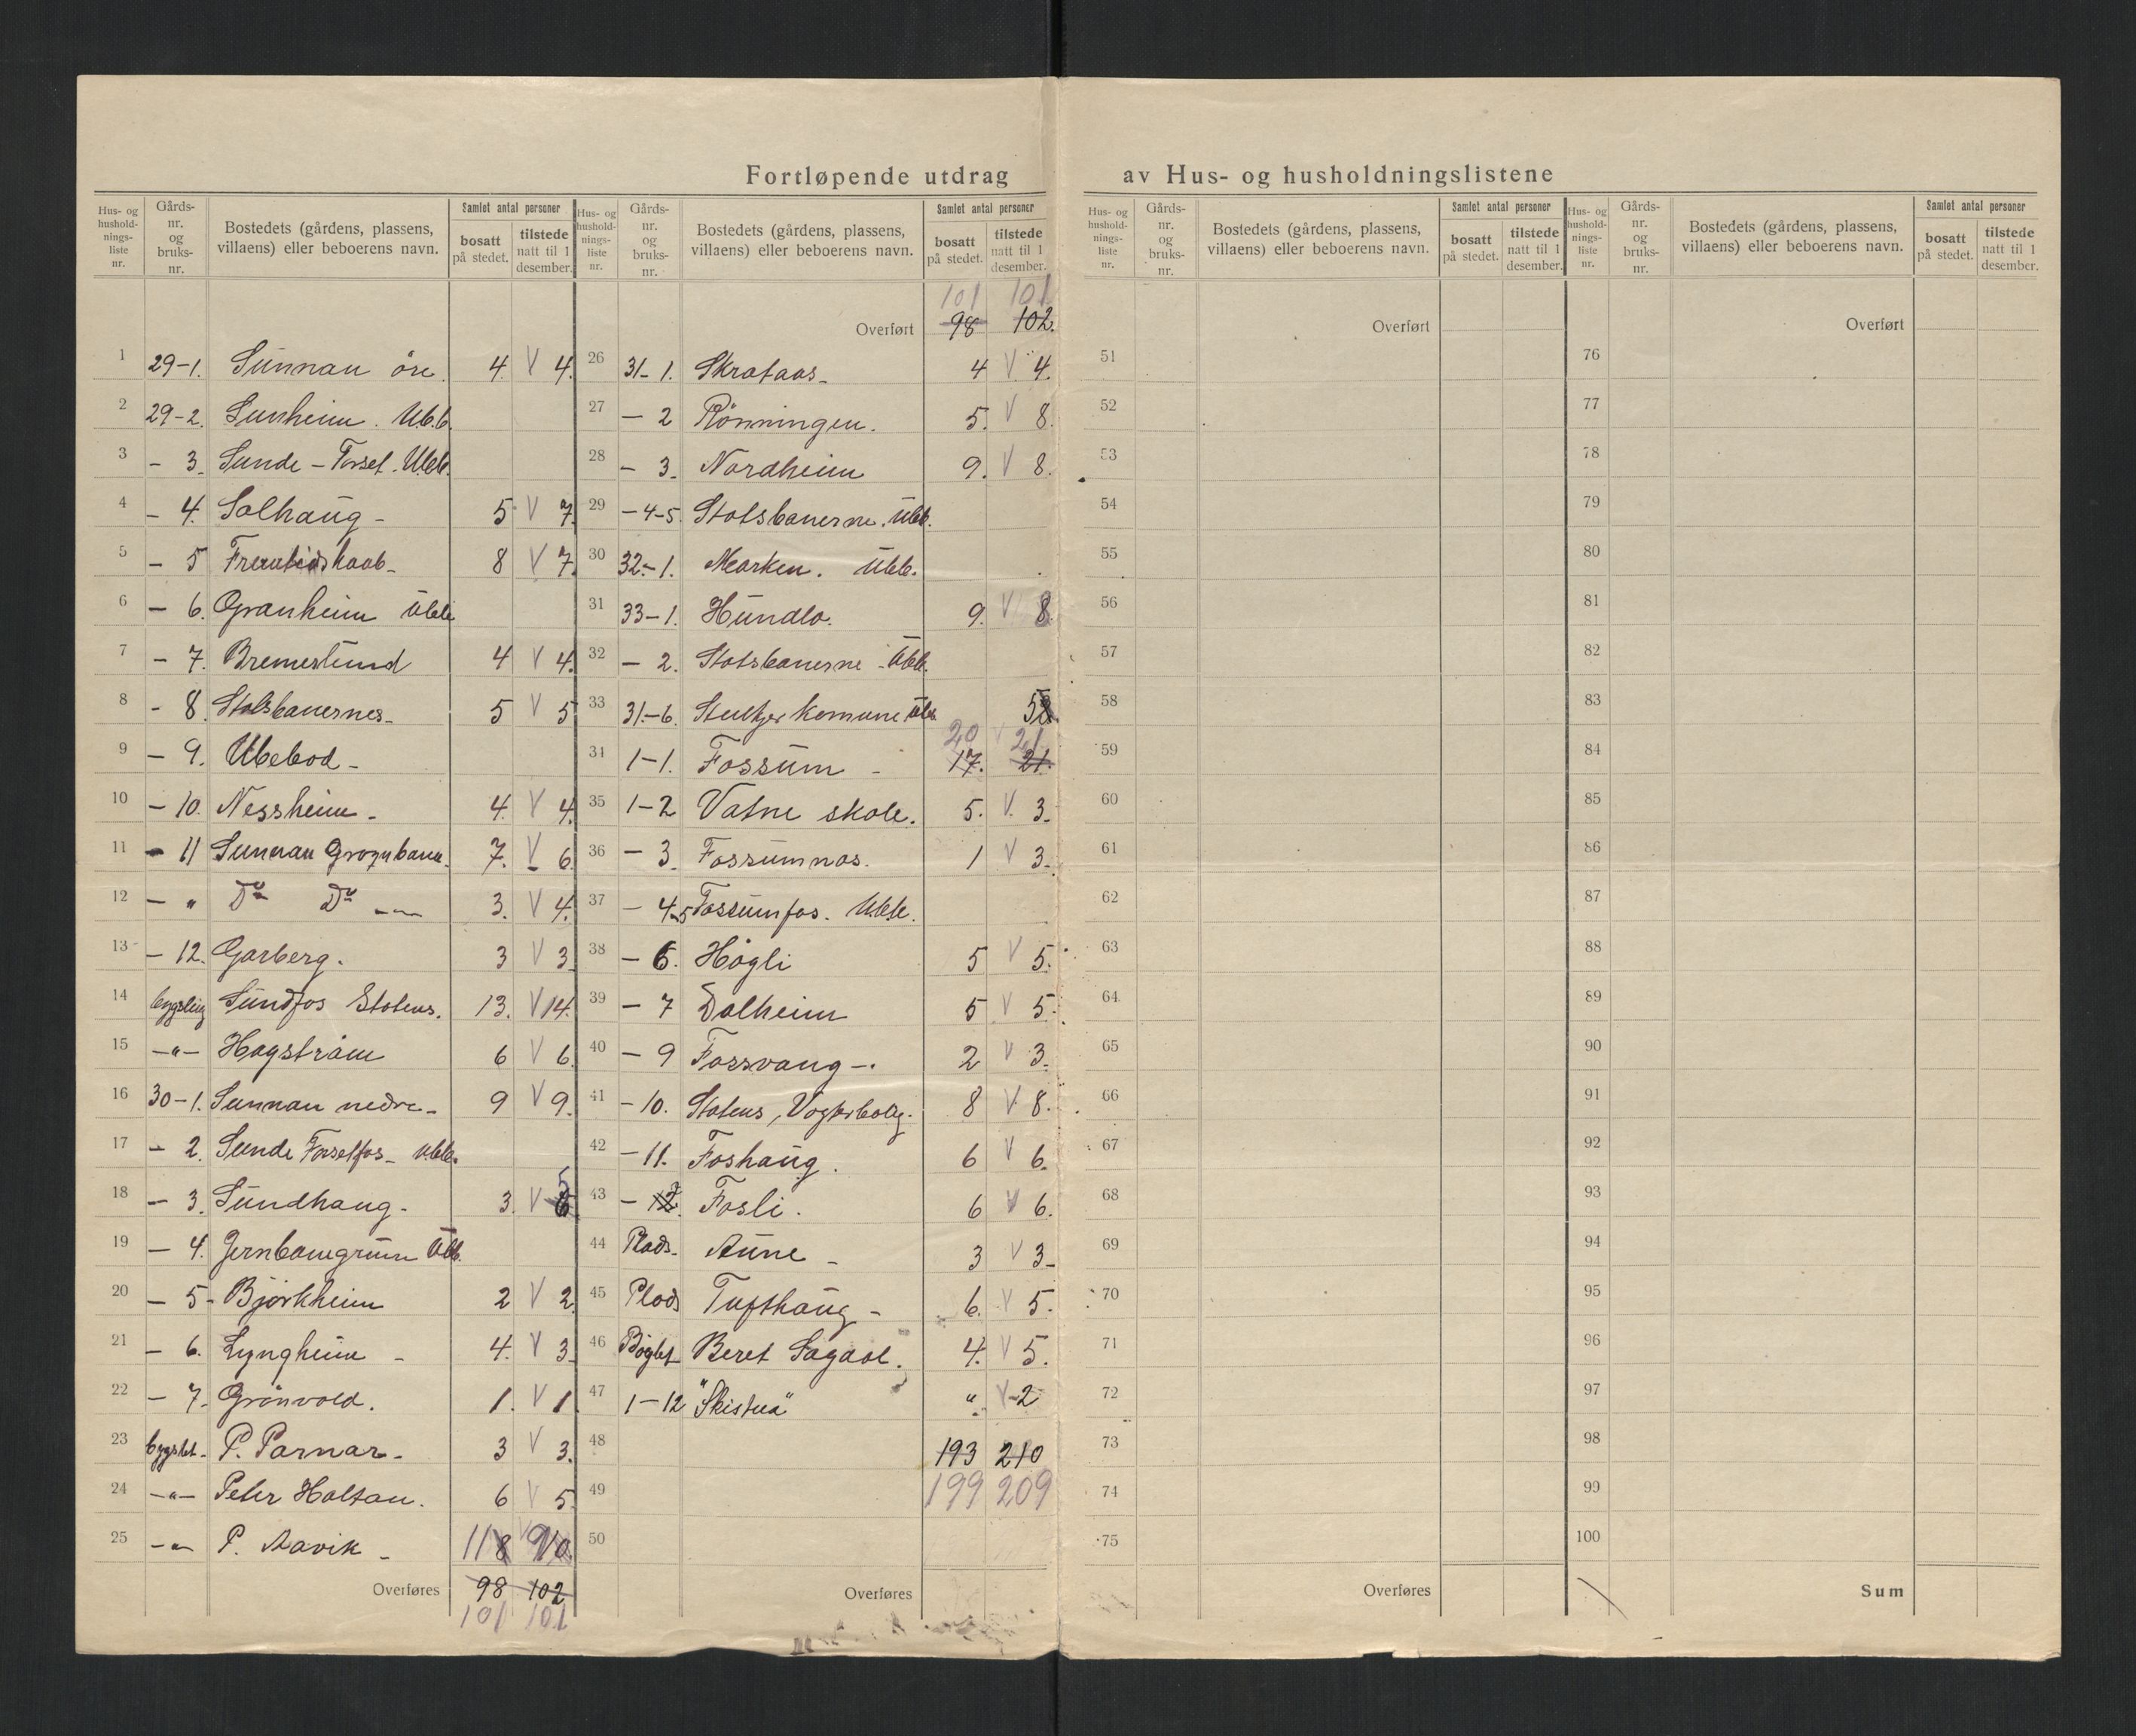 Fortløpende utdrag av Hus- og husholdningslistene
Hus- og hushold-nings-liste nr. Gårds-nr. og bruks-nr. Bostedets (gårdens, plassens, villaens) eller beboerens navn. Samlet antal personer bosatt på stedet. tilstede natt til 1 desember.
1 29-1. Sunnan öre. 4. V 4.
2 29-2. Sunheim. Ubb.
3 - 3. Sunde - Forset. Ubb.
4 - 4. Solhaug - 5. V 7.
5 - 5 Fremtidshaab - 8 V 7.
6 - 6. Granheim Ubb.
7 - 7. 4 V 4.
8 - 8. Statsbanernes - 5 V 5
9 - 9. Ubebod -
10 - 10. Nessheim - 4. V 4.
11 - 11 Sunnan 7. V 6.
12 - " Do Do 3. V 4.
13 - 12. Garberg. 3 V 3.
14 Sundfos Statens. 13. V 14.
15 -"- Hagstrøm 6 V 6.
16 30-1. Sunnan nedre - 9 V 9.
17 - 2. Sunde Forsetfos - Ubb.
18 - 3. Sundhaug - 3. V 6 5
19 - 4. Jernbanegrunn Ubb.
20 - 5 - Björkheim 2 V 2.
21 - 6. Lyngheim - 4. V 3.
22 - 7. Grönvold. 1. V 1.
23 bygslet - P. Parnar - 3 V 3.
24 -"- Peter Holtan. 6 V 5.
25 -"- P. Aavik - 11 8 V 10.
Overføres 98 102
101 101
Hus- og hushold-nings-liste nr. Gårds-nr. og bruks-nr. Bostedets (gårdens, plassens, villaens) eller beboerens navn. Samlet antal personer bosatt på stedet. tilstede natt til 1 desember.
101 101
Overført 98 102.
26 31-1. Skrataas - 4 V 4.
27 - 2 Rönningen. 5. V 8.
28 - 3. Nordheim 9. V 8.
29 - 4-5. Statsbanerne. Ubb.
30 32-1. Marken. Ubb.
31 33-1. Hundlo. 9. V 8.
32 - 2. Statsbanerne - Ubb.
33 31-6. komune Ubb.
20 V 21
34 1-1. Fossum - 17. 21.
35 1-2 Vatne skole. 5. V. 3.
36 - 3. Fossumnas. 1 V 3.
37 - 4-5 Fossumfos. Ubb.
38 - 6. Högli 5 V 5.
39 - 7 Dalheim 5 V 5.
40 - 9 Fossvang - 2 V 3.
41 - 10. Statens Vogterbolig. 8 V 8.
42 - 11. Foshaug. 6 V 6.
43 - Fosli. 6 V 6.
44 Plads - Aune - 3 V 3 -
45 Plads Tufthaug - 6. V 5.
46 Beret Sagaol. 4. V 5.
47 1-12 "Skistua" " V - 2
48 193 210
49 199 209
50
Overføres
Hus- og hushold-nings-liste nr. Gårds-nr. og bruks-nr. Bostedets (gårdens, plassens, villaens) eller beboerens navn. Samlet antal personer bosatt på stedet. tilstede natt til 1 desember.
Overført
51
52
53
54
55
56
57
58
59
60
61
62
63
64
65
66
67
68
69
70
71
72
73
74
75
Overføres
Hus- og hushold-nings-liste nr. Gårds-nr. og bruks-nr. Bostedets (gårdens, plassens, villaens) eller beboerens navn. Samlet antal personer bosatt på stedet. tilstede natt til 1 desember.
Overført
76
77
78
79
80
81
82
83
84
85
86
87
88
89
90
91
92
93
94
95
96
97
98
99
100
Sum